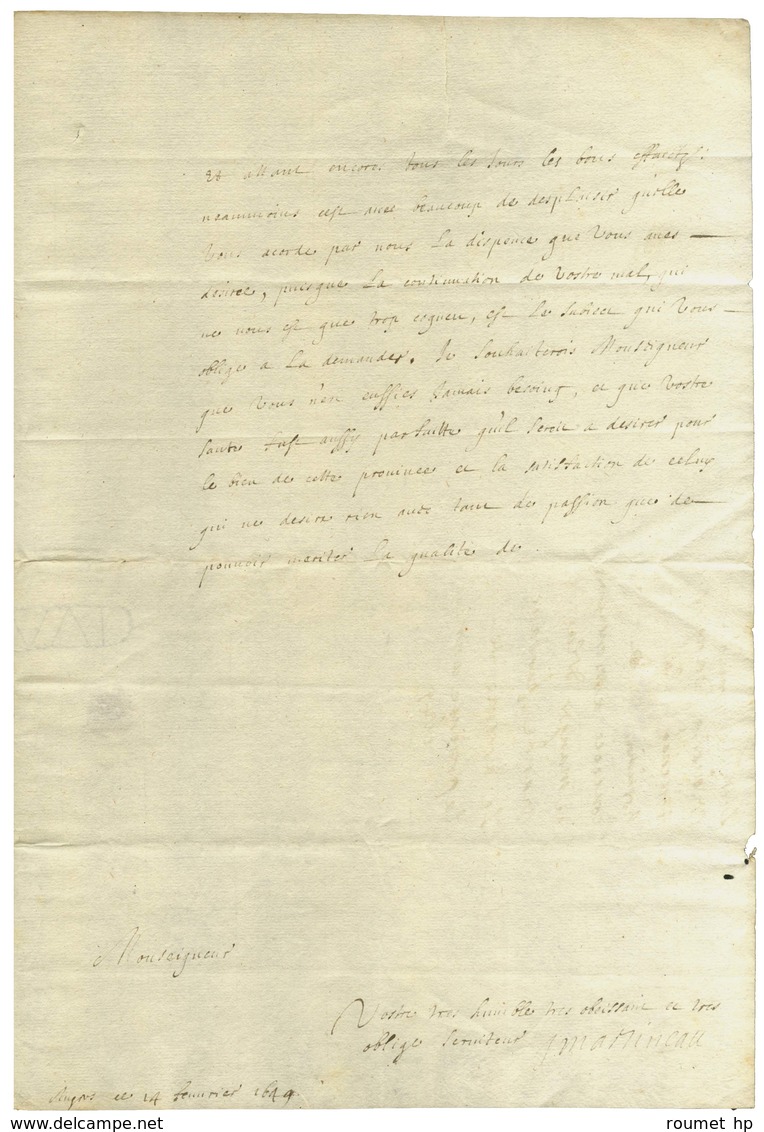 et attant encores tous les Jours les bons effaictz.
neammoins cest avec beaucoup de desplaisir quelle
vous acorde par nous La dispence que Vous aves
desiree, puisque La continuation de Vostre mal, qui
ne nous est que trop cogneu, est Le Subiect qui Vous
oblige a La demander. Je Souhaiterois Monseigneur
que Vous n'en eussies Jamais besoing, et que Vostre
Sante fust aussy parfaitte qu'il Seroit a desirer pour
le bien de cette province et la satisfaction de celuy
qui ne desire rien avec tant de passion que de
pouvoir meriter La qualité de
Monseigneur
Vostre tres humble tres obeissant et tres
oblige Serviteur Jmartineau
Angers ce 14 fevurier 1649.
roumet hp